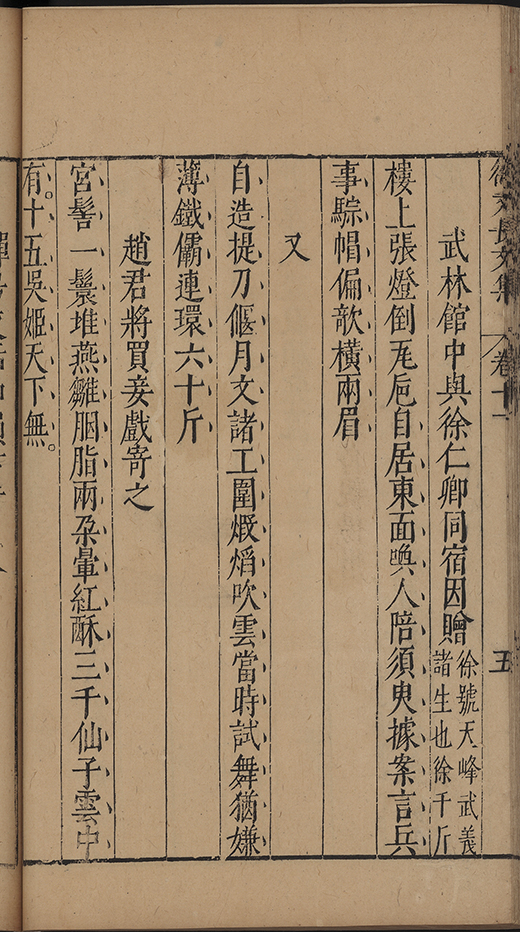 徐文長文集 卷十一 五
武林館中與徐仁卿同宿因贈徐號天峰武義諸生也徐千斤
樓上張燈倒瓦卮自居東面喚人陪須臾據案言兵
事騌帽偏欹橫兩眉
又
自造提刀偃月文諸工圍煅焰吹雲當時試舞猶嫌
薄鐵儒連環六十斤
趙君將買妾戲寄之
宮髻一鬟堆燕雛胭脂兩朶暈紅酥三千仙子雲中
有十五吳姬天下無